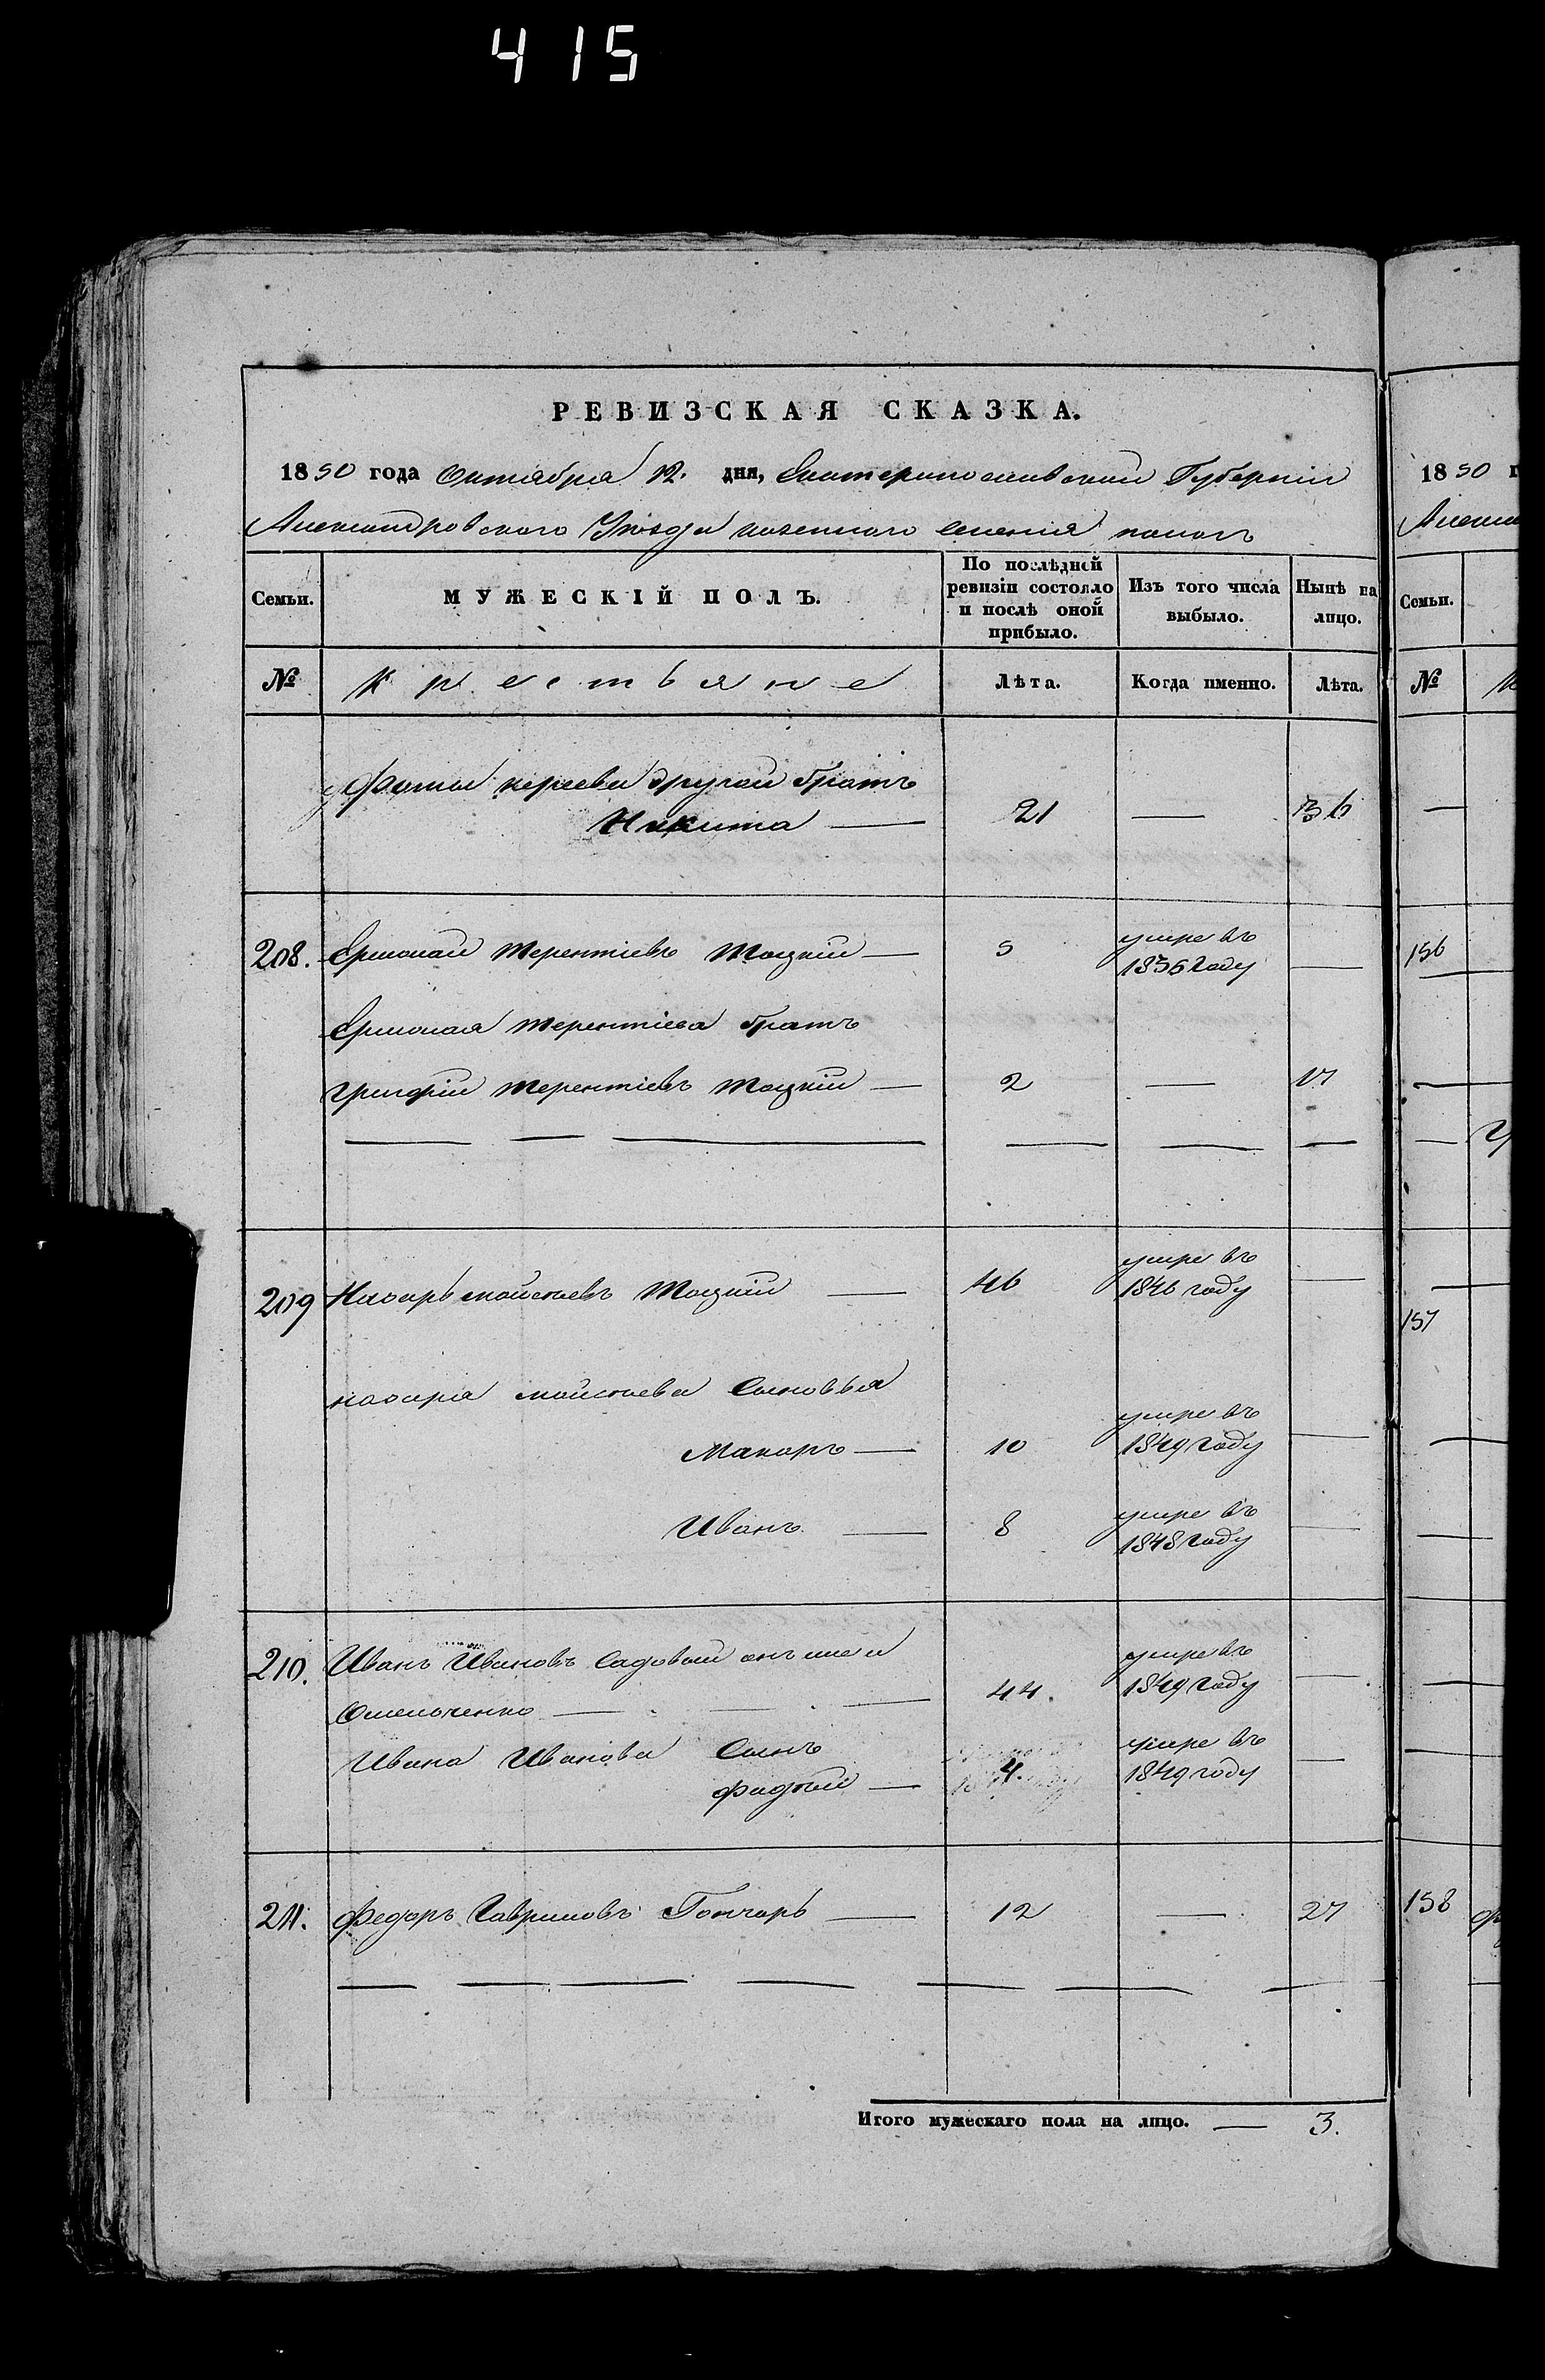 415
РЕВИЗСКАЯ СКАЗКА.
1850 года Октября 12. дня, Екатеринославской Губернiи
Александровского Уѣзда казенного селенiя
Семьи. МУЖЕСКIЙ ПОЛЪ. По послѣдней ревизiи состояло и послѣ оной прибыло. Изъ того числа выбыло. Нынѣ на лицо.
№ Крестьяне Лѣта. Когда именно. Лѣта.
Фомы другой братъ
Никита — 21 — 36
208. Ермолай Терентiевъ Тоцкiй — 5 умре въ 1836 году —
Ермолая Терентiева братъ
Григорiй Терентiевъ Тоцкiй — 2 — 17
209 Назаръ Мойсѣевъ Тоцкiй — 46 умре въ 1846 году —
Назара Мойсѣева сыновья
Макаръ — 10 умре въ 1849 году —
Иванъ — 8 умре въ 1848 году —
210. Иванъ Ивановъ Садовый онъ же и
Омельченко — 44. умре въ 1849 году —
Ивана Иванова сынъ
Фадѣй — 4. умре въ 1849 году —
211. Федоръ Гавриловъ Гончаръ — 12 — 27
Итого мужескаго пола на лицо. — 3.
1850 г
Алекса
Семьи.
№
156
157
158